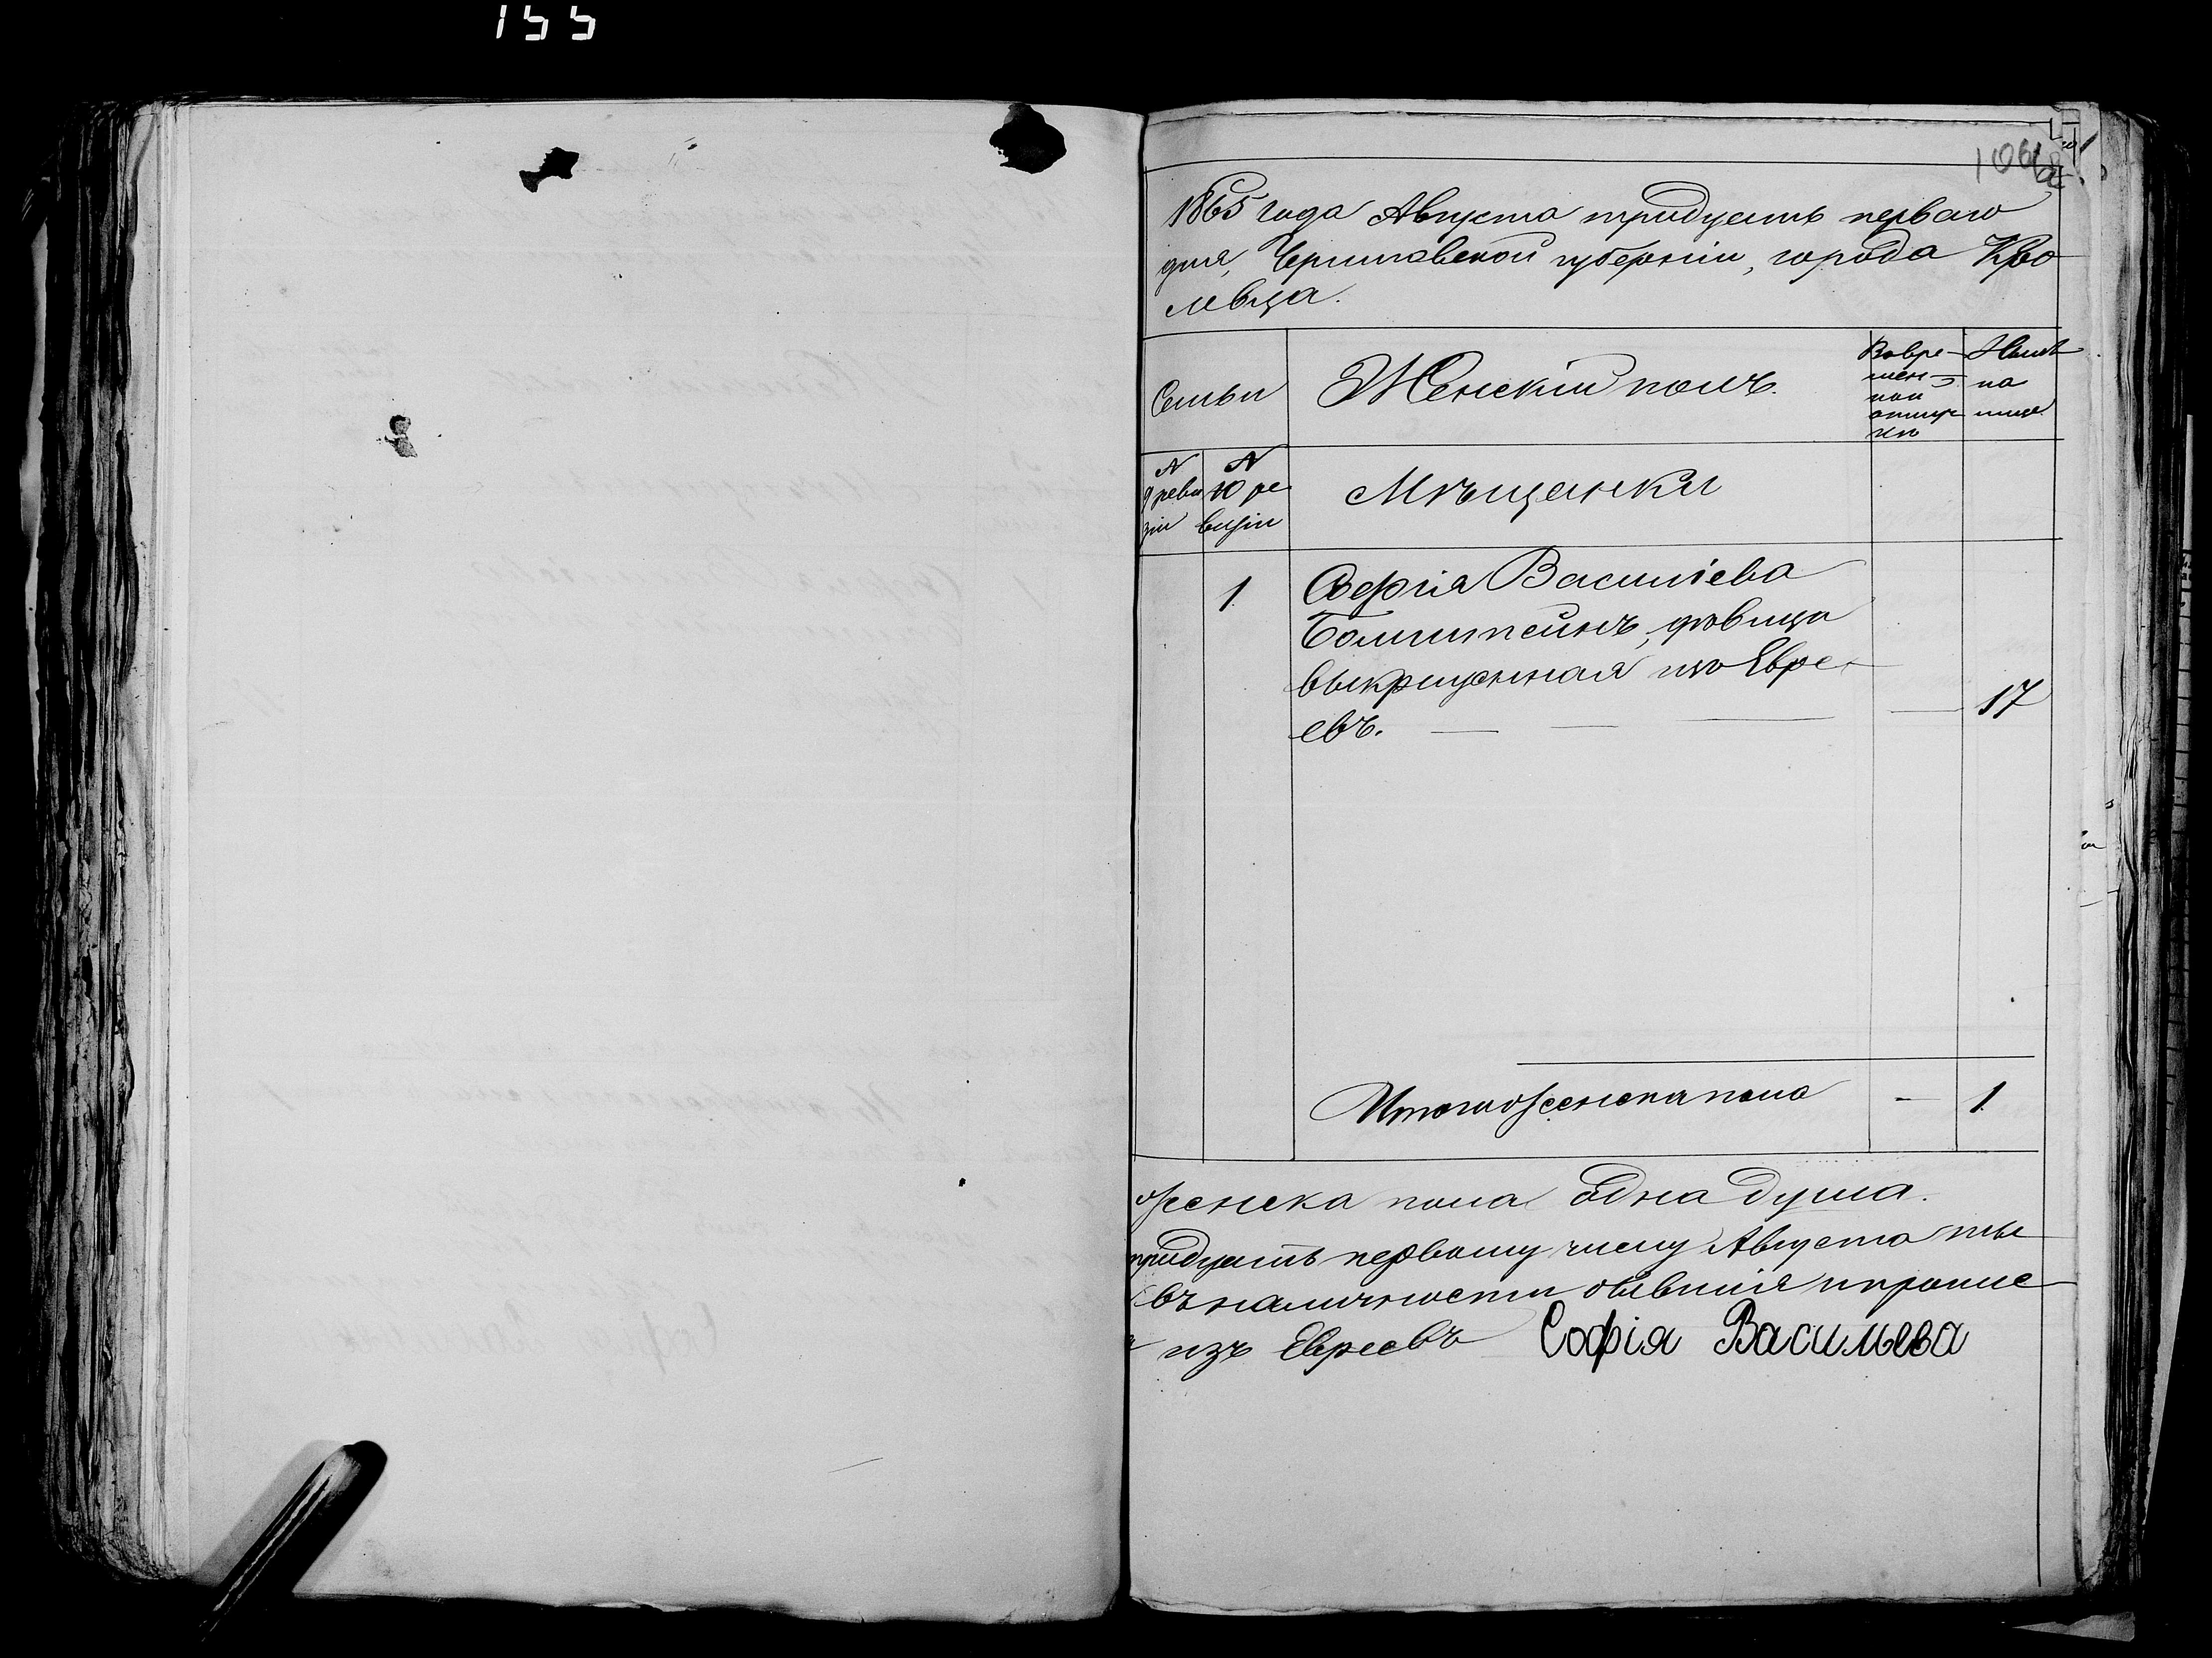 155
1865 года Августа тридцать перваго
дня, Черниговской губерніи, города Кро
левца.
Семьи
Женскій полъ.
Вовре-
мен-
ной
отлуч
кѣ
Нынѣ
на
лице
N
9 реви
зіи
N
10 ре
визіи
Мѣщанки
1
Софія Василіева
Болштейнъ, дѣвица
выкрещенная изъ Евре-
евъ.
17
Итого женска пола
-
1
женска пола одна душа.
тридцать первому числу Августа ты
въ наличности бывшія и пропис
изъ Евреевъ Софія Васильева